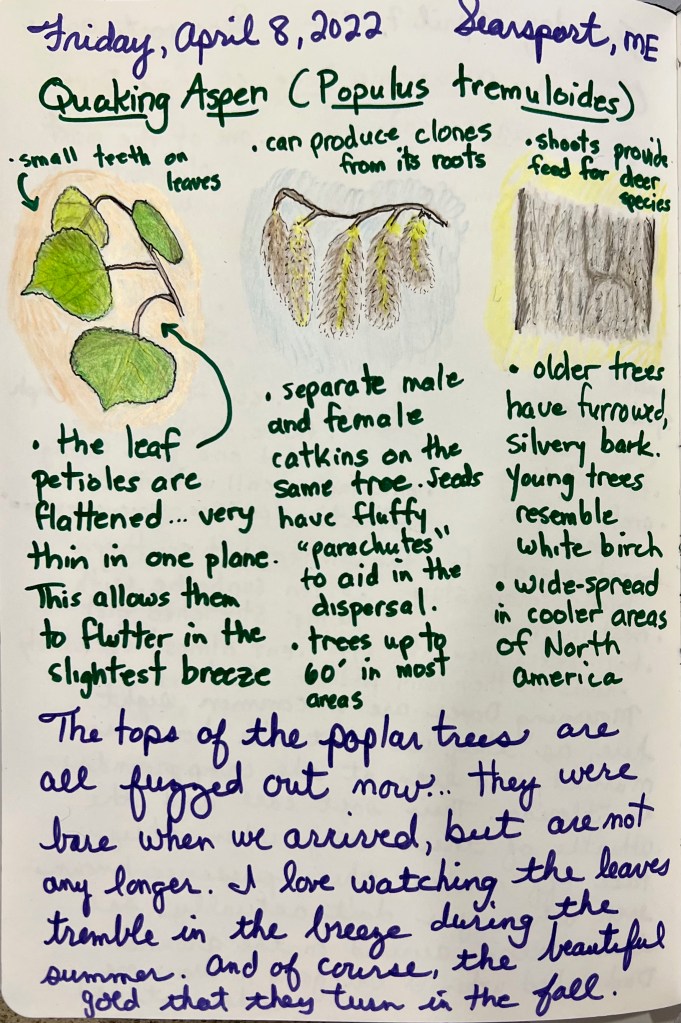 Friday, April 8, 2022 Searsport, ME
Quaking Aspen (Populus tremuloides)
• small teeth on
leaves
• can produce clones
from its roots
• shoots provide
feed for deer
species
• the leaf
petioles are
flattened... very
thin in one plane.
This allows them
to flutter in the
slightest breeze
• separate male
and female
catkins on the
same tree. Seeds
have fluffy
"parachutes"
to aid in the
dispersal.
• trees up to
60' in most
areas
• older trees
have furrowed,
silvery bark.
Young trees
resemble
white birch
• wide-spread
in cooler areas
of North
america
The tops of the poplar trees are
all fuzzed out now... they were
bare when we arrived, but are not
any longer. I love watching the leaves
tremble in the breeze during the
summer. And of course, the beautiful
gold that they turn in the fall.